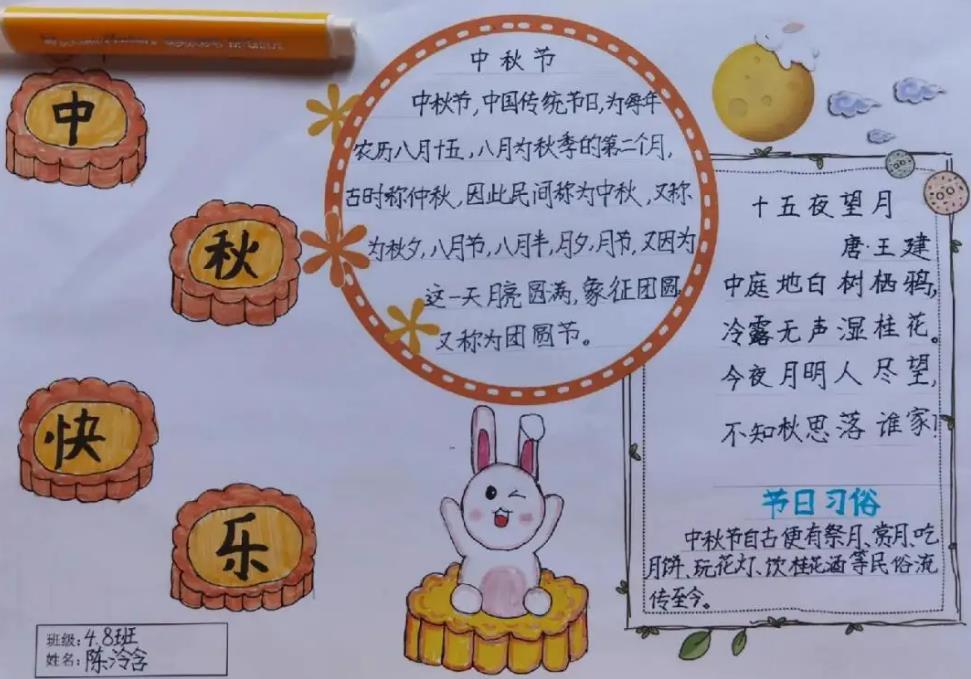 中
秋
快
乐
中秋节
中秋节,中国传统节日,为每年
农历八月十五,八月为秋季的第二个月,
古时称仲秋,因此民间称为中秋,又称
为秋夕,八月节,八月半,月夕,月节,又因为
这一天月亮圆满,象征团圆
又称为团圆节。
十五夜望月
唐·王建
中庭地白树栖鸦,
冷露无声湿桂花。
今夜月明人尽望,
不知秋思落谁家!
节日习俗
中秋节自古便有祭月、赏月、吃
月饼、玩花灯、饮桂花酒等民俗流
传至今。
班级:4.8班
姓名:陈泠含